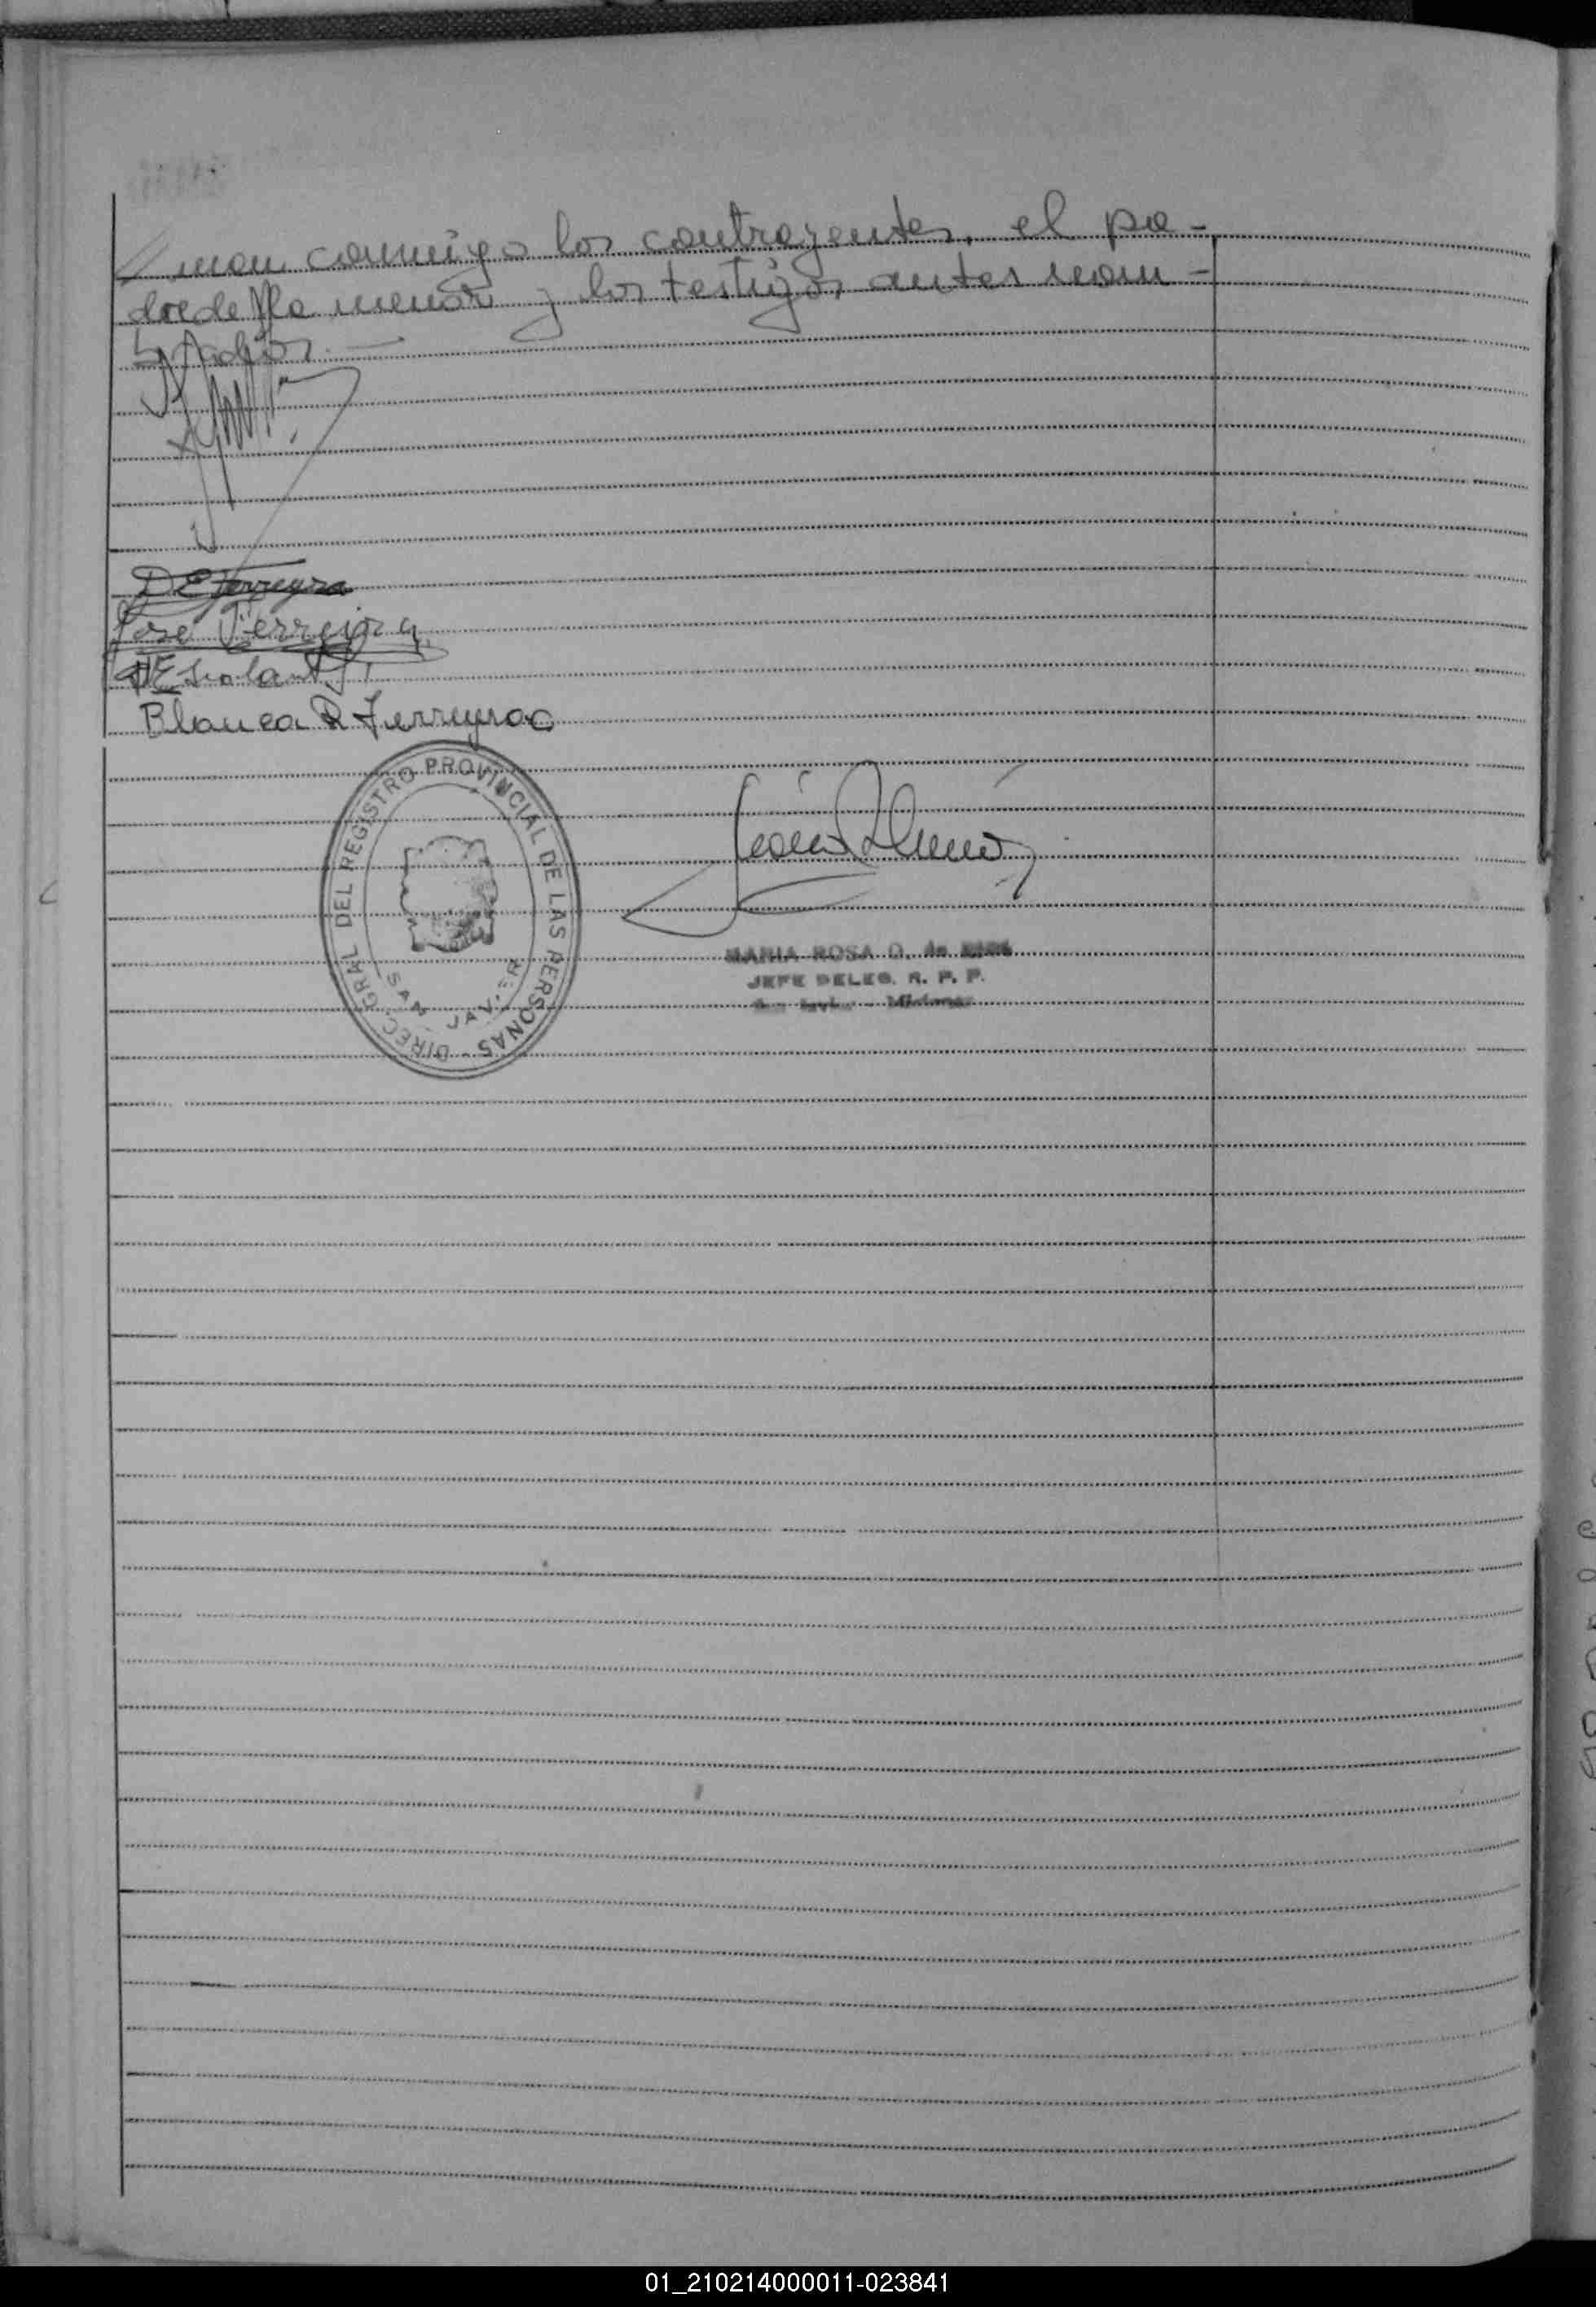 man conmigo los contrayentes, el pa-
dre de la menor y los testigos antes nom-
brados.—
DE Ferreyra
José Ferreyra
Blanca R Ferreyra
DIREC. GRAL DEL REGISTRO PROVINCIAL DE LAS PERSONAS -
SAN JAVIER
MARIA ROSA O. de
JEFE DELEG. R. P. P.
San Javier - Misiones
01_210214000011-023841